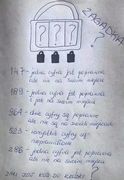 ZAGADKA
? ? ?
147 - jedna cyfra jest poprawna
ale nie na swoim miejscu
189 - jedna cyfra jest poprawna
i jest na swoim miejscu
964 - dwie cyfry są poprawne
ale nie są na swoich miejscach
523 - wszystkie cyfry są
niepoprawne
286 - jedna cyfra jest poprawna
ale nie na swoim miejscu
JAKI JEST KOD DO KŁÓDKI ?